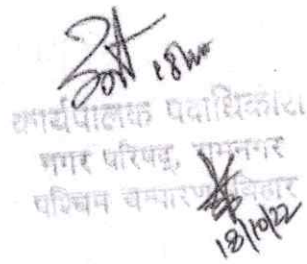 कार्यपालक पदाधिकारी
नगर परिषद, रामनगर
पश्चिम चम्पारण बिहार
18/10/22